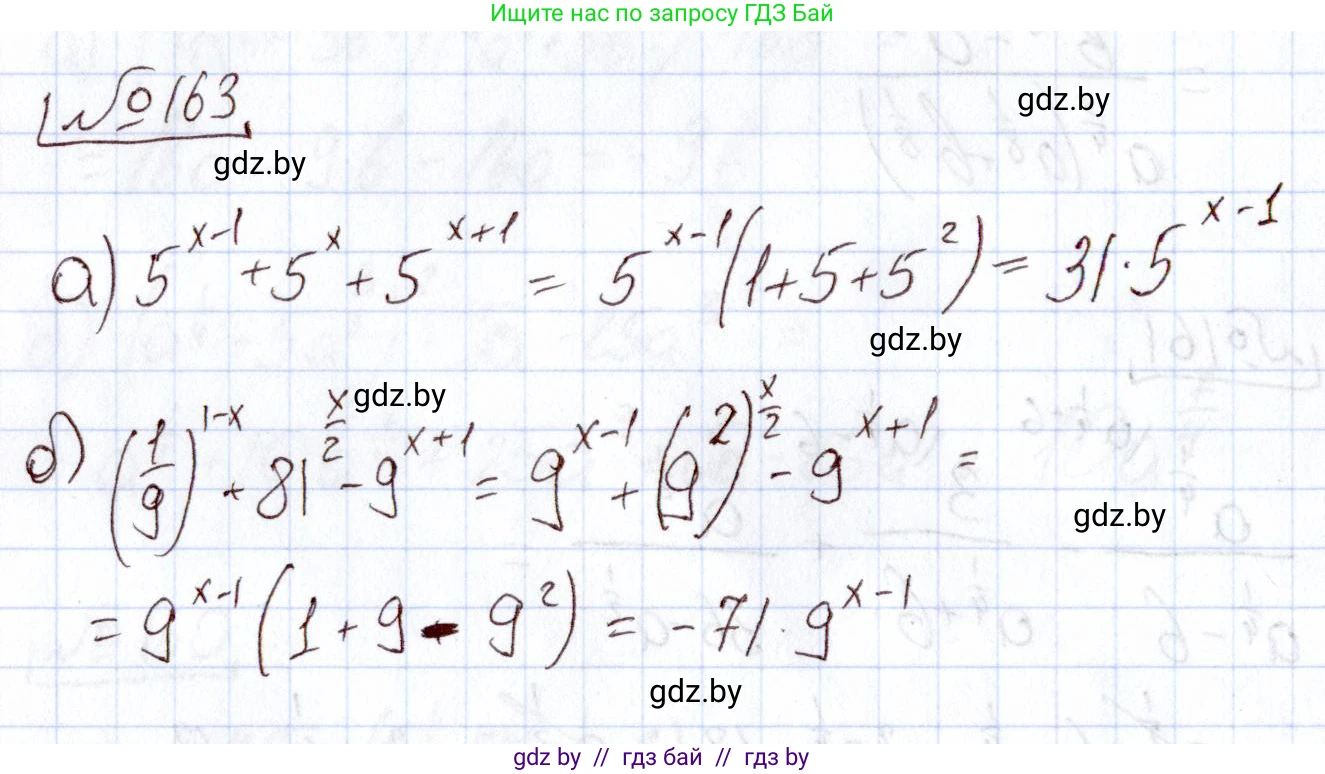 Ищите нас по запросу ГДЗ Бай
№163
gdz.by
gdz.by
а) 5^{x-1} + 5^x + 5^{x+1} = 5^{x-1}(1+5+5^2) = 31·5^{x-1}
gdz.by
gdz.by
б) (1/9)^{1-x} + 81^{x/2} - 9^{x+1} = 9^{x-1} + (9^2)^{x/2} - 9^{x+1} =
gdz.by
= 9^{x-1}(1 + 9 - 9^2) = -71·9^{x-1}
gdz.by
gdz by // гдз бай // gdz by